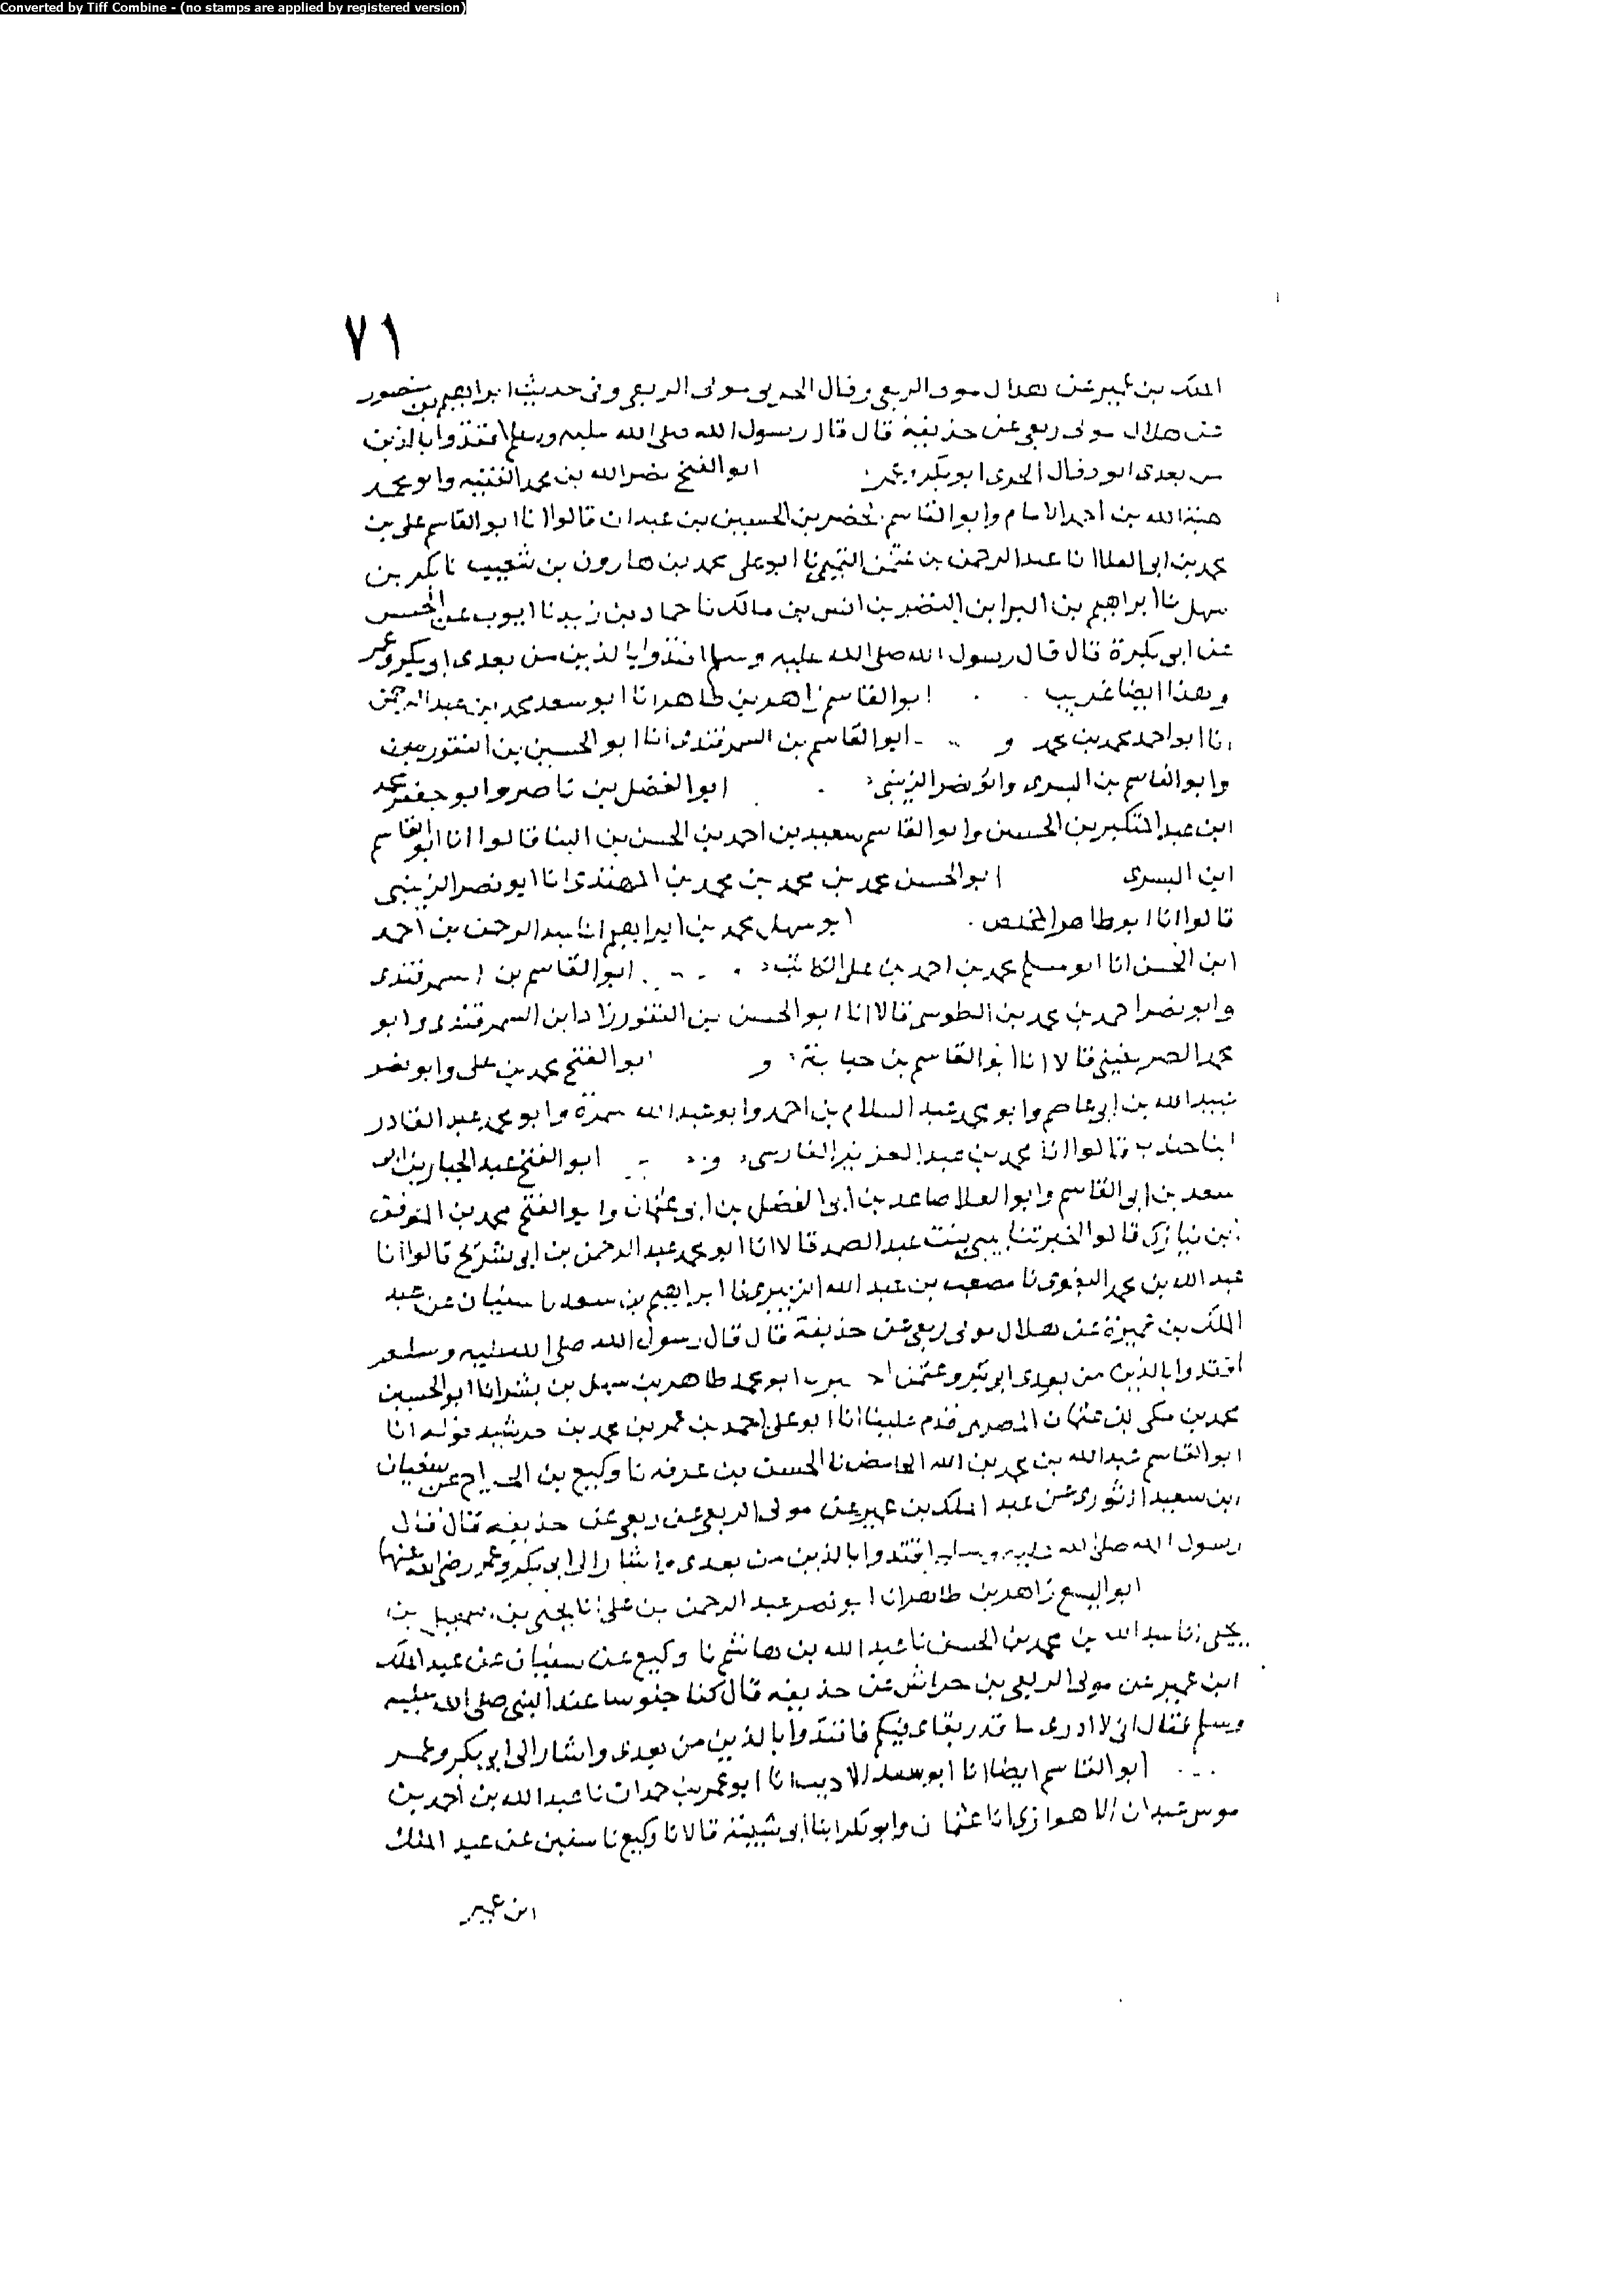 Converted by Tiff Combine - (no stamps are applied by registered version)
٧١
الملك بن عمير عن هلال مولى الربعي وقال الحربي مولى الربعي وفي حديث ابراهيم بن منصور
عن هلال مولى ربعي عن حذيفة قال قال رسول الله صلى الله عليه وسلم اقتدوا بالذين
من بعدي ابو وقال ابو بكر وعمر ابو الفتح نصر الله بن محمد الفقيه وابو محمد
هبة الله بن احمد الامام وابو القاسم الخضر بن الحسين بن عبدان قالوا انا ابو القاسم علي بن
محمد بن ابي العلا انا عبد الرحمن بن عثمن التميمي نا ابو علي محمد بن هارون بن شعيب نا بكر بن
سهل نا ابراهيم بن البرا بن النضر بن انس بن مالك نا حماد بن زيد نا ايوب عن الحسن
عن ابي بكرة قال قال رسول الله صلى الله عليه وسلم اقتدوا بالذين من بعدي ابي بكر وعمر
وهذا ايضا غريب ابو القاسم زاهر بن طاهر انا ابو سعد محمد بن عبد الرحمن
انا ابو احمد محمد بن محمد و ابو القاسم بن السمرقندي انا ابو الحسين بن النقور
وابو القاسم بن البسري وابو نصر الزينبي ابو الفضل بن ناصر وابو جعفر محمد
ابن عبد المتكبر بن الحسين وابو القاسم سعيد بن احمد بن الحسن بن البنا قالوا انا ابو القاسم
ابن البسري ابو الحسن محمد بن محمد بن محمد بن المهتدي انا ابو نصر الزينبي
قالوا انا ابو طاهر المخلص ابو سهل محمد بن ابراهيم انا عبد الرحمن بن احمد
ابن الحسن انا ابو مسلم محمد بن احمد بن علي الكاتب ابو القاسم بن السمرقندي
وابو نصر احمد بن محمد بن الطوسي قالا انا ابو الحسن بن النقور زاد ابن السمرقندي وابو
محمد الصريفيني قالا انا ابو القاسم بن حبابة و ابو الفتح محمد بن علي وابو نصر
عبيد الله بن ابي عاصم وابو محمد عبد السلام بن احمد وابو عبد الله سمرة وابو محمد عبد القادر
ابنا جندب قالوا انا محمد بن عبد العزيز الفارسي و ابو الفتح عبد الجبار بن ابي
سعد بن ابي القاسم وابو العلا صاعد بن ابي الفضل بن ابي عثمان وابو الفتح محمد بن الموفق
بن نيازك قالوا اخبرتنا بيبى بنت عبد الصمد قالا انا ابو محمد عبد الرحمن بن ابي شريح قالوا انا
عبد الله بن محمد البغوي نا مصعب بن عبد الله الزبيري نا ابراهيم بن سعد نا سفيان عن عبد
الملك بن عمير عن هلال مولى ربعي عن حذيفة قال قال رسول الله صلى الله عليه وسلم
اقتدوا بالذين من بعدي ابو بكر وعثمن ابو محمد طاهر بن سهل بن بشر انا ابو الحسين
محمد بن مكي بن عثمان المصري قدم علينا انا ابو علي احمد بن عمر بن محمد بن خرشيد قوله انا
ابو القاسم عبد الله بن محمد بن الله الحامض نا الحسن بن عرفه نا وكيع بن الجراح عن سفيان
ابن سعيد الثوري عن عبد الملك بن عمير عن مولى الربعي عن ربعي عن حذيفه قال قال
رسول الله صلى الله عليه وسلم اقتدوا بالذين من بعدي واشار الى ابي بكر وعمر رضي الله عنهما
زاهر بن طاهر انا ابو نصر عبد الرحمن بن علي انا يحيى بن اسمعيل بن
يحيى انا عبد الله بن محمد بن الحسن نا عبد الله بن هاشم نا وكيع عن سفيان عن عبد الملك
ابن عمير عن مولى الربعي بن حراش عن حذيفه قال كنا جلوسا عند النبي صلى الله عليه
وسلم فقال اني لا ادري ما قدر بقاي فيكم فاقتدوا بالذين من بعدي واشار الى ابي بكر وعمر
ابو القاسم ايضا انا ابو سعد الاديب انا ابو عمرو بن حمدان نا عبد الله بن احمد بن
موسى عبدان الاهوازي انا عثمان وابو بكر ابنا ابي شيبة قالا نا وكيع نا سفين عن عبد الملك
ابن عمير